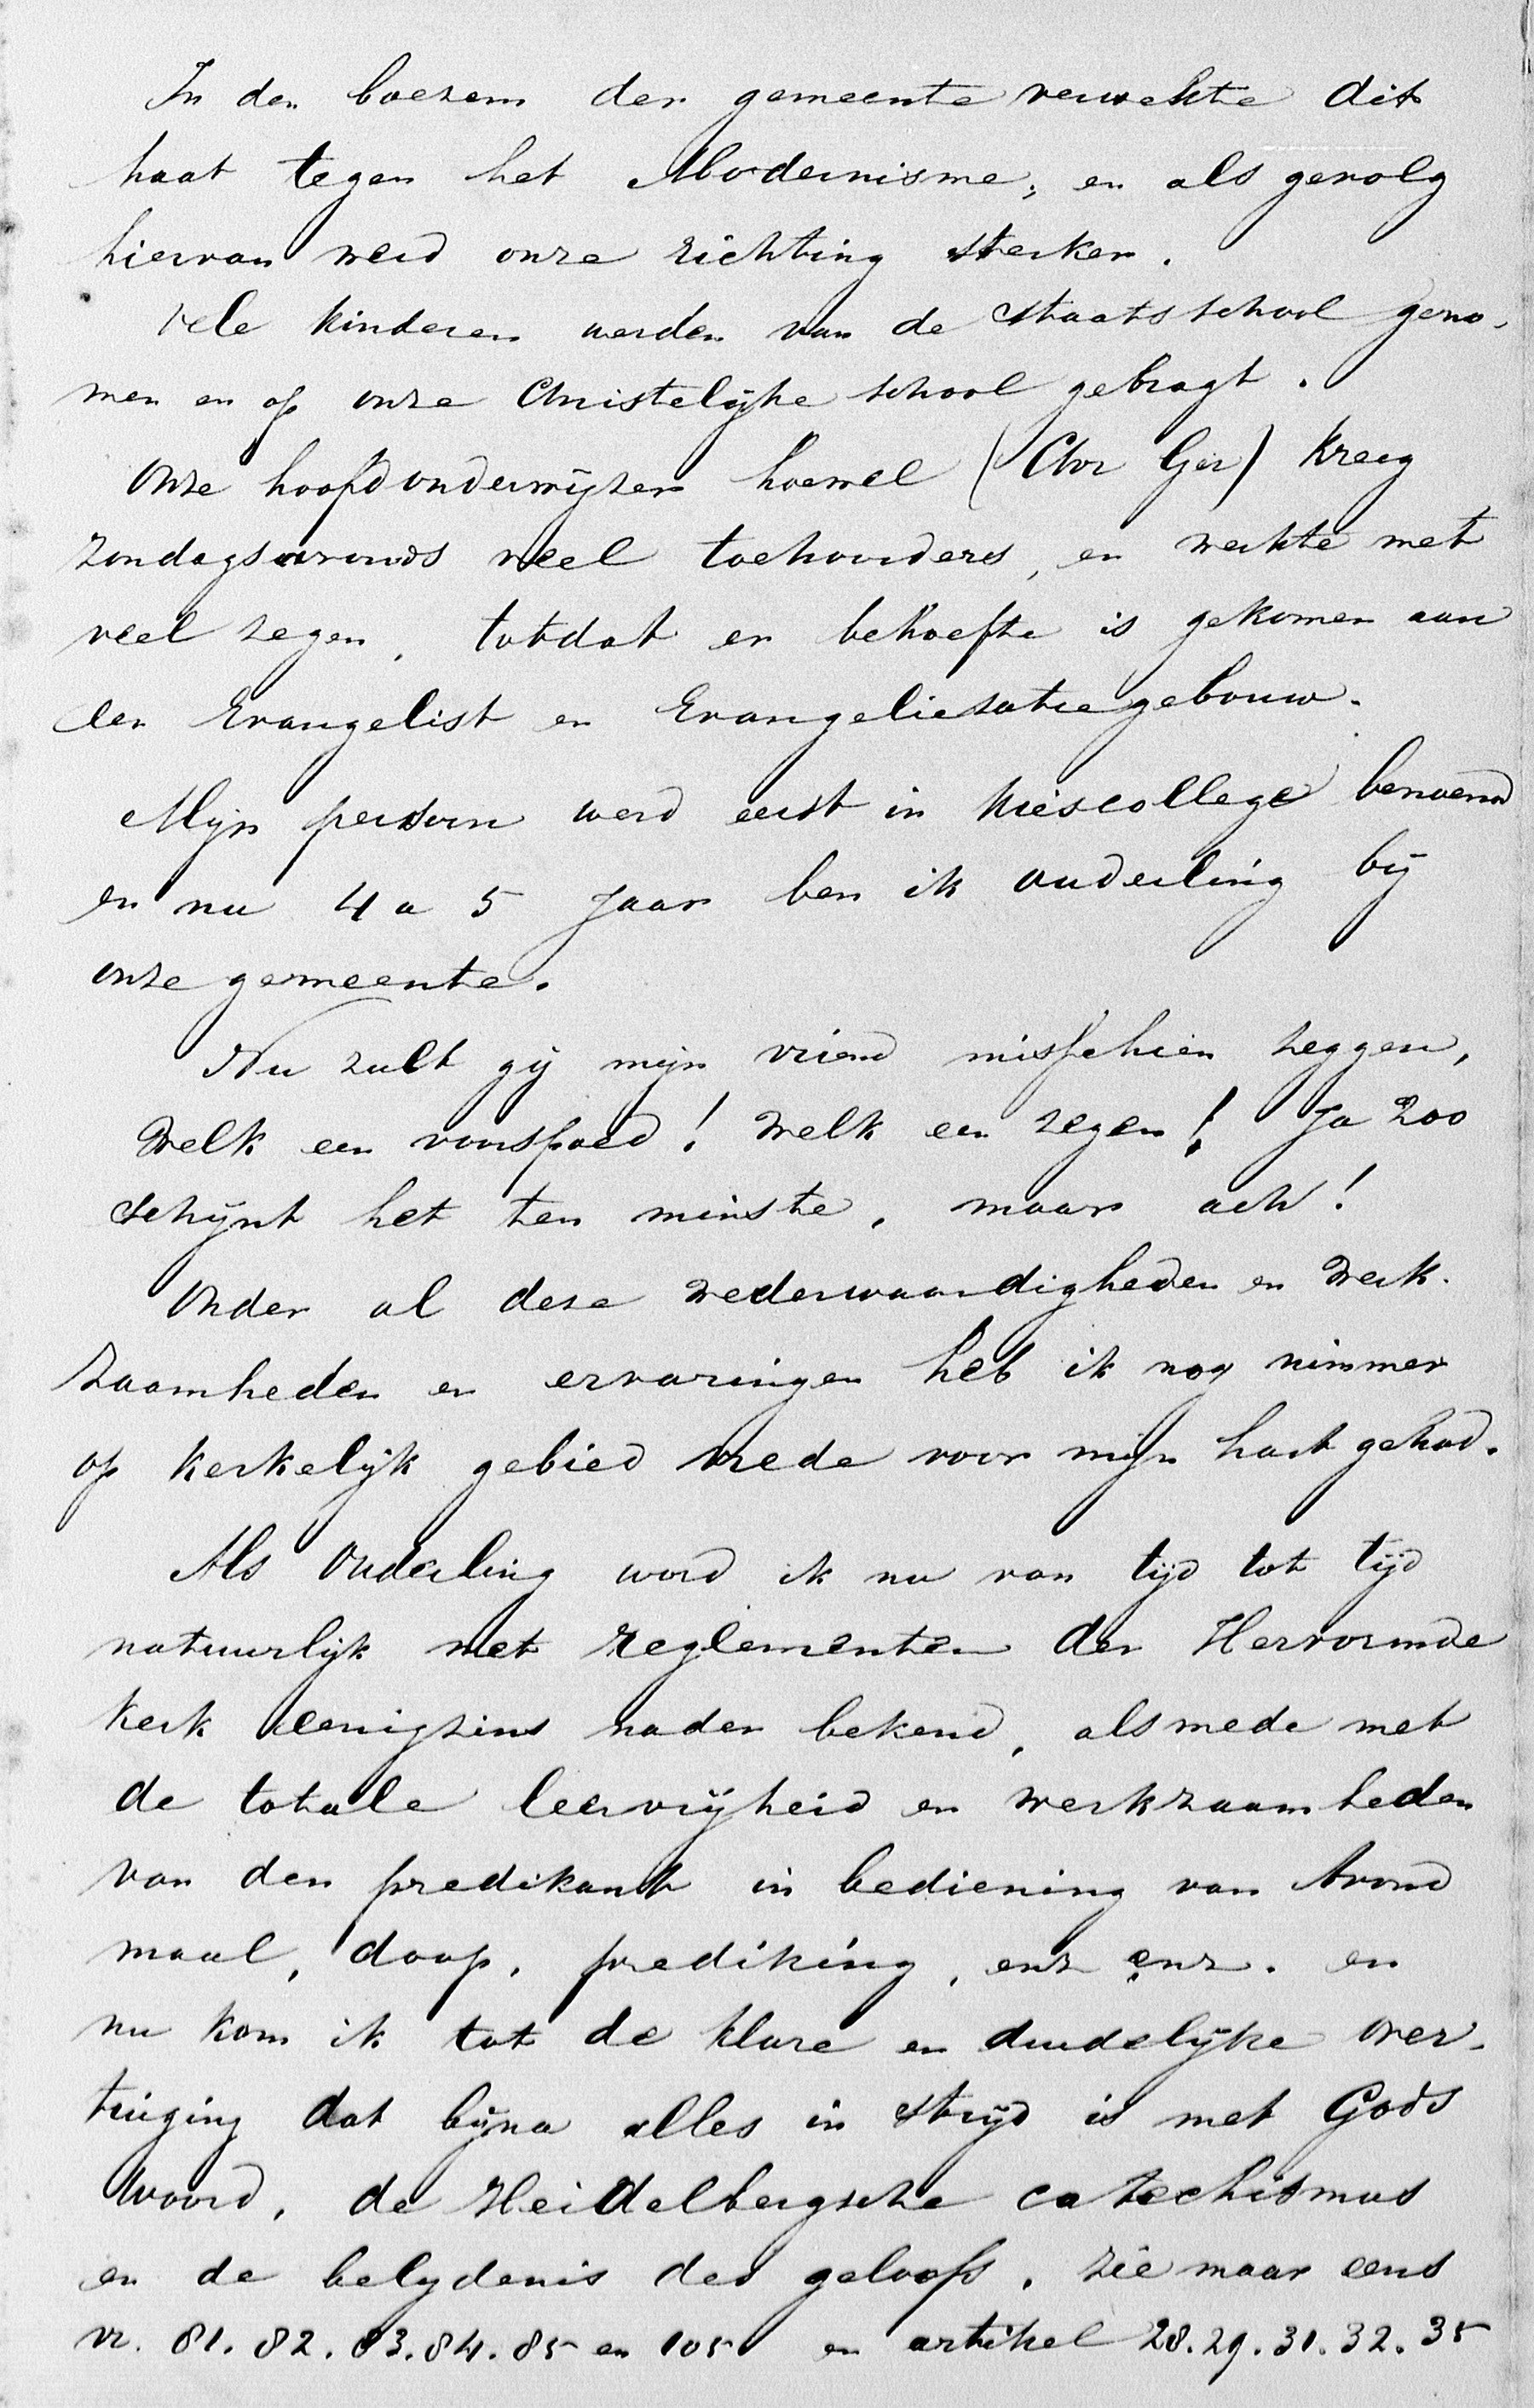 In den boezem der gemeente verwekte dit
haat tegen het Modernisme; en als gevolg
hiervan werd onze richting sterker.
Vele kinderen werden van de Staatsschool geno-
men en op onze Christelijke school gebragt.
Onze hoofdonderwijzer hoewel (Chr Ger) kreeg
zondagsavonds veel toehoorders, en werkte met
veel zegen, totdat er behoefte is gekomen aan
een Evangelist en Evangeliesatiegebouw.
Mijn persoon werd eerst in kiescollege benoemd
en nu 4 a 5 Jaar ben ik ouderling bij
onze gemeente.
Nu zult gij mijn vriend misschien zeggen,
Welk een voorspoed! Welk een zegen! Ja zoo
schijnt het ten minste, maar ach!
Onder al deze wederwaardigheden en werk-
zaamheden en ervaringen heb ik nog nimmer
op kerkelijk gebied vrede voor mijn hart gehad.
Als Ouderling word ik nu van tijd tot tijd
natuurlijk met reglementen der Hervormde
Kerk eenigzins nader bekend, alsmede met
de totale leervrijheid en werkzaamheden
van den predikant in bediening van Avond
maal, doop, prediking, enz enz. en
nu kom ik tot de klare en duidelijke over-
tuiging dat bijna alles in strijd is met Gods
Woord, de Heidelbergsche catechismus
en de belydenis des geloofs, zie maar eens
vr. 81. 82. 83. 84. 85 en 105 en artikel 28. 29. 31. 32. 35